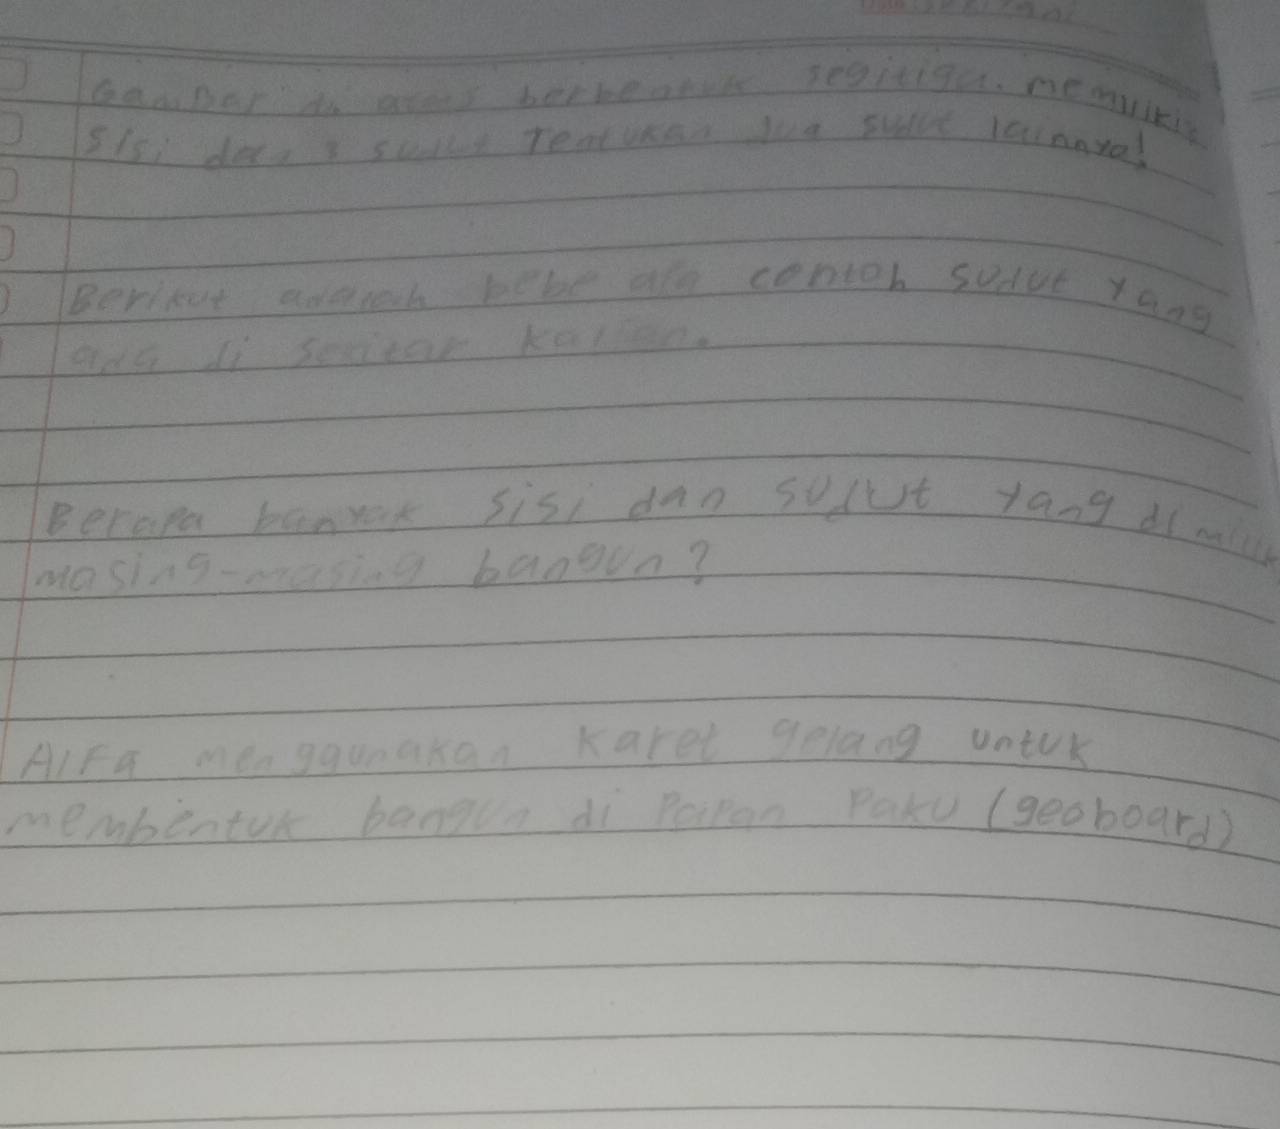 Gambar di atas berbentuk segitiga. memiliki 3
sisi dan 3 sudut Tentukan dua sudut lainnya!
Berikut adalah bebe apa contoh sudut yang
ada di sekitar kalian.
Berapa banyak sisi dan sudut yang di milik
masing-masing bangun?
Alfa menggunakan karet gelang untuk
membentuk bangun di Papan Paku (geoboard)